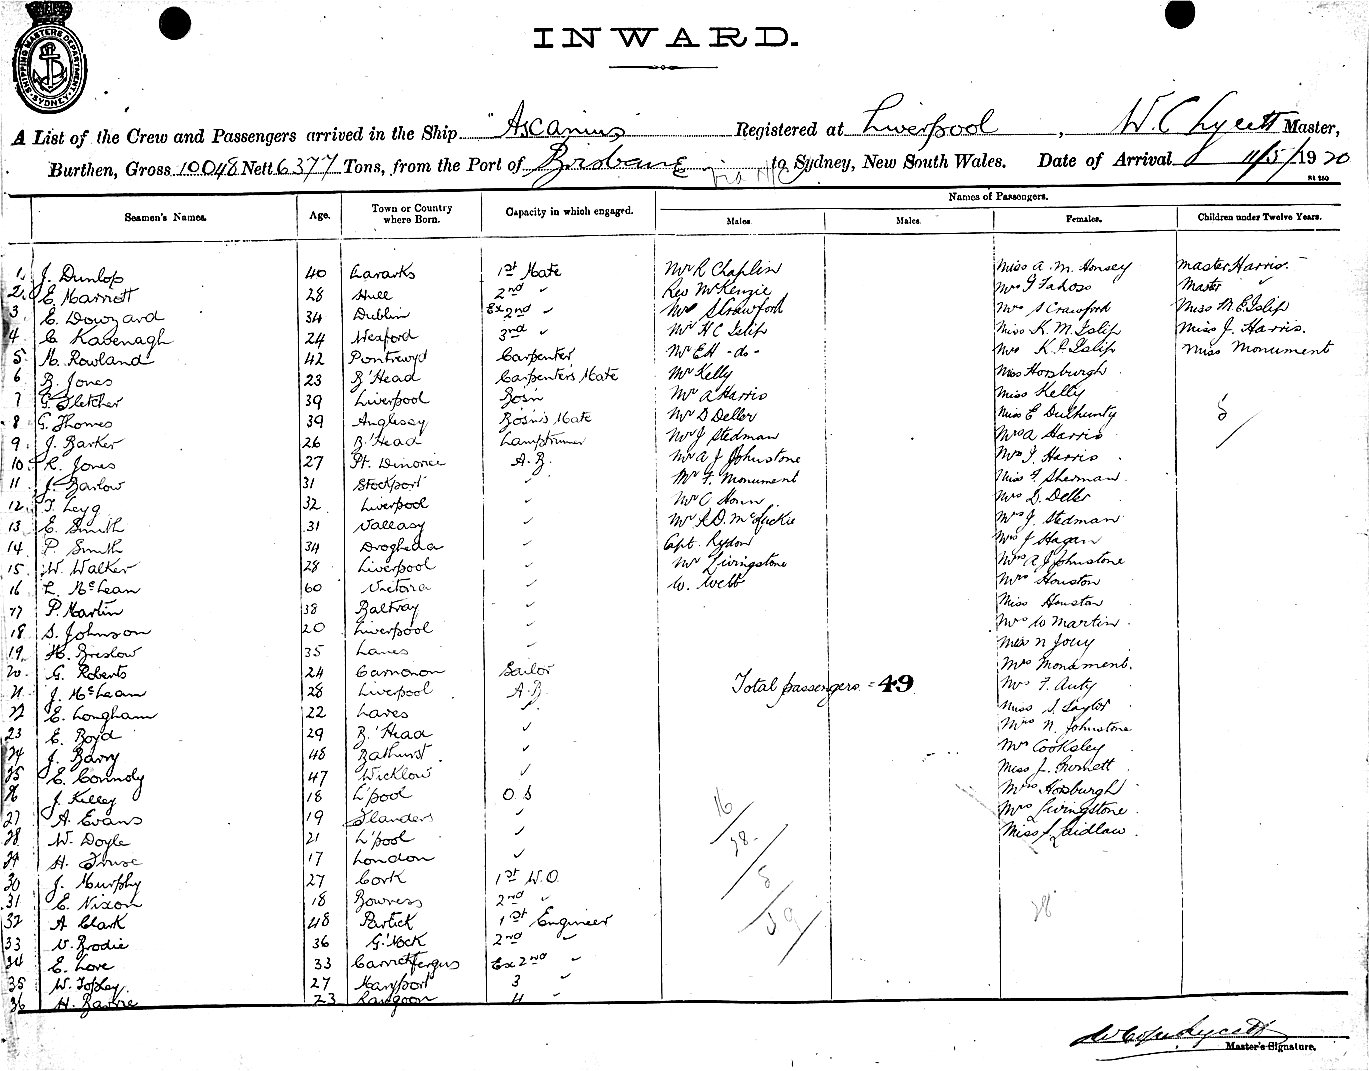 SHIPPING MASTERS DEPARTMENT SYDNEY
INWARD.
A List of the Crew and Passengers arrived in the Ship "Ascanius" Registered at Liverpool, W. C Lycett Master,
Burthen, Gross 10048 Nett 6377 Tons, from the Port of Brisbane to Sydney, New South Wales. Date of Arrival 11/5/1920
Seamen's Names. Age. Town or Country where Born. Capacity in which engaged. Names of Passengers.
Males. Males. Females. Children under Twelve Years.
1. J. Dunlop 40 1st Mate Mr R Chaplin Miss A. M. Master Harris.
2. E. Marrett 28 Hull 2nd " Rev McKenzie Mrs Master "
3. E. Dowzard 34 Dublin Ex 2nd " S Crawford Mrs S Crawford Miss M. E. Islip
4 C Kavenagh 24 Wexford 3rd " Mr H C Islip Miss K. M. Islip Miss J. Harris.
5 Rowland 42 Carpenter Mr E H -do- Mrs K. Islip Miss Monument
6 Jones 23 B'Head Carpenters Mate Mr Kelly Miss Horsburgh
7 G. Fletcher 39 Liverpool Bosn Mr A Harris Miss Kelly
8 G. Thomas 39 Anglesey Bosn's Mate Mr D Deller Miss E Dulhunty 5
9 J. Barker 26 B'Head Lamptrimmer Mr J Stedman Mrs A Harris
10 R. Jones 27 Pt. Dinorwic A.B. Mr A J Johnstone Mrs Harris
11 J. Barlow 31 Stockport " Mr F. Monument Miss Sherman
12 T. 32 Liverpool " Mr C Mrs D. Deller
13 E. Smith 31 Vallasy " Mr R D. McLuckie Mrs J. Stedman
14 P. Smith 34 Drogheda " Capt. Rydon Mrs J Hagan
15 W. Walker 28 Liverpool " Mr Livingstone Mrs A J Johnstone
16 L. McLean 60 Victoria " W. Webb Mrs Houston
17 P. Martin 38 Baltray " Miss Houston
18 S. Johnson 20 Liverpool " Mrs W Martin
19 H. Breslow 35 " Miss N
20 G. Roberts 24 Carnarvon Sailor Mrs Monument.
21 J. McLean 28 Liverpool A.B. Total passengers = 49 Mrs F. Auty
22 E. Longham 22 " Miss S. Taylor
23 E. Boyd 29 B'Head " Mrs N. Johnstone
24 J. Barry 48 Bathurst " Mrs Cooksley
25 E. Connoly 47 Wicklow " Miss L.
26 J. Killey 18 L'pool O.S Mrs Horsburgh
27 A. Evans 19 Flanders " Mrs Livingstone
28 W. Doyle 21 L'pool " Miss Laidlaw
29 H. 17 London "
30 J. Murphy 27 Cork 1st W.O.
31 E. Nixon 18 Bowness 2nd "
32 A Clark 48 Partick 1st Engineer
33 Brodie 36 G'Nock 2nd "
34 E. Love 33 Carrickfergus Ex 2nd "
35 W. Topley. 27 Maryport 3 "
36 H. 23 Rangoon 4 "
16
28
5
28
Master's Signature.